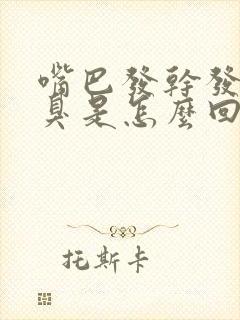 嘴巴發幹發
臭是怎麼回
托斯卡